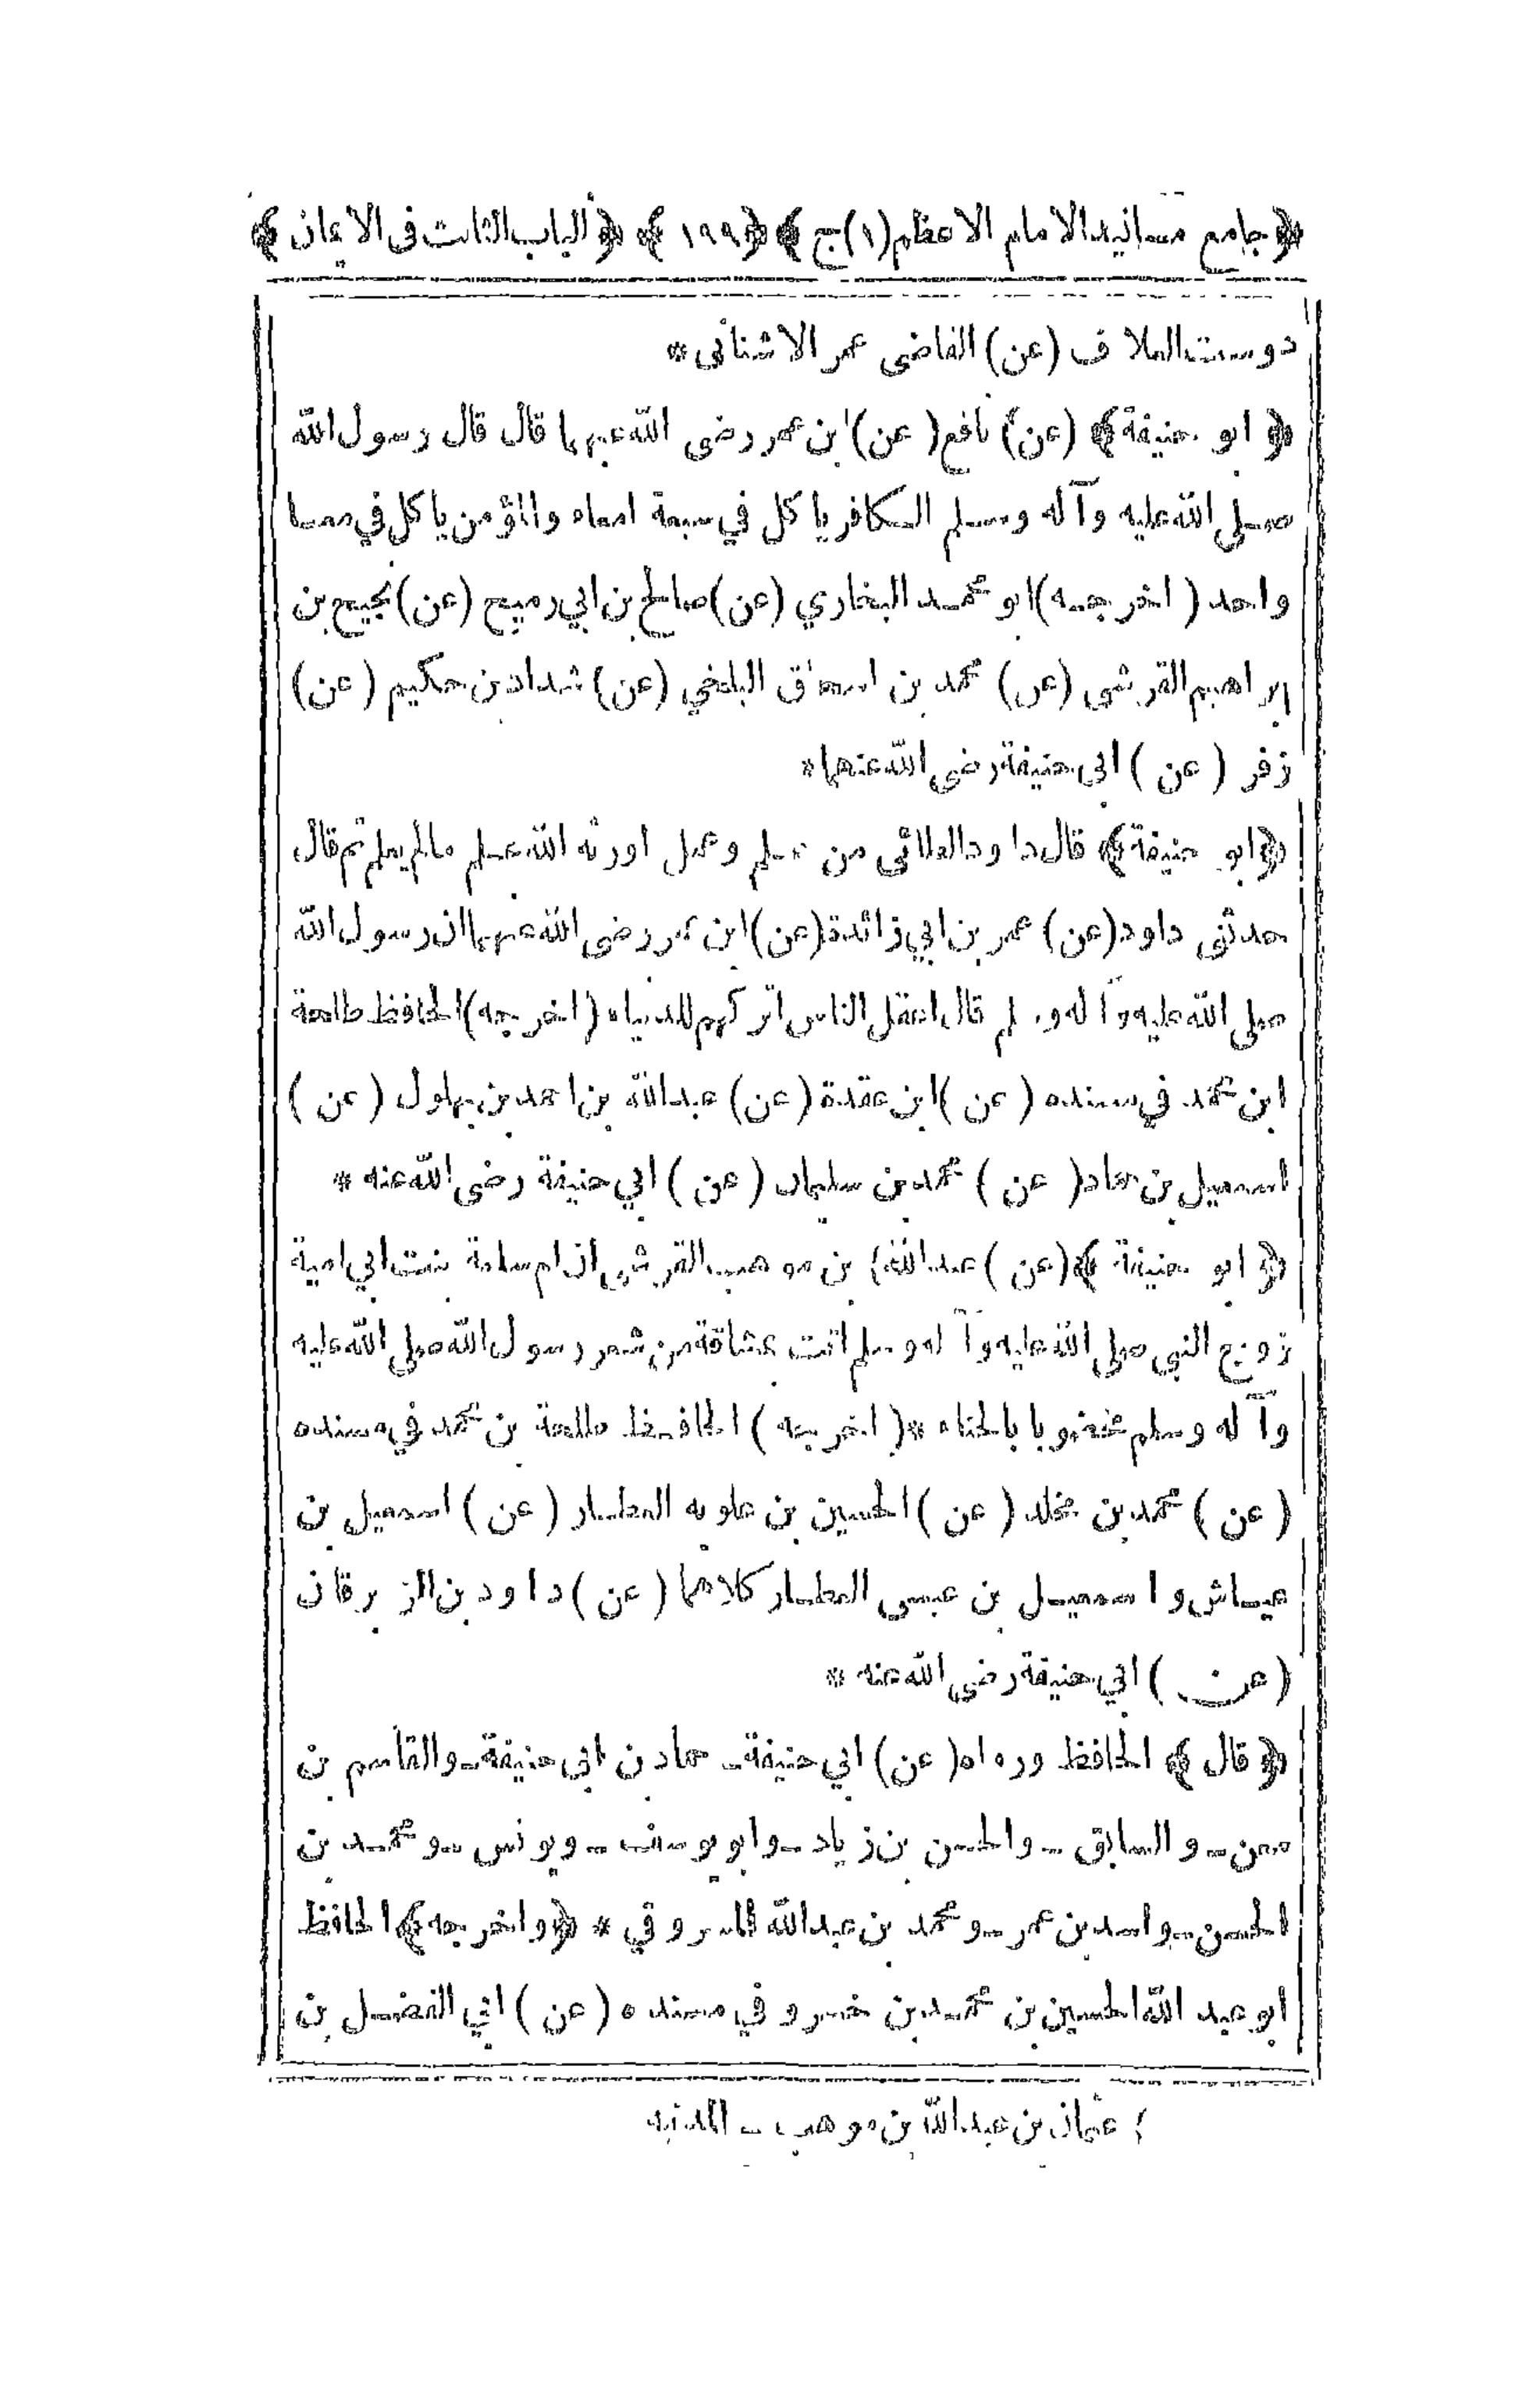 ﴿جامع مسانيد الامام الاعظم(١)ج﴾ ﴿١٩٩﴾ ﴿الباب الثالث فى الايمان﴾
دوست العلاف (عن) القاضى عمر الاشنانى*
﴿ابو حنيفة﴾ (عن) نافع (عن) ابن عمر رضى الله عنهما قال قال رسول الله
صلى الله عليه وآله وسلم الكافر ياكل في سبعة امعاء والمؤمن ياكل في معا
واحد (اخرجه) ابو محمد البخاري (عن) صالح بن ابي رميح (عن) نجيح بن
ابراهيم القرشى (عن) محمد بن اسحاق البلخي (عن) شداد بن حكيم (عن)
زفر (عن) ابى حنيفة رضى الله عنهما*
﴿ابو حنيفة﴾ قال داود الطائى من علم وعمل اورثه الله علم مالم يعلم ثم قال
حدثنى داود (عن) عمر بن ابي زائدة (عن) ابن عمر رضى الله عنهما ان رسول الله
صلى الله عليه وآله وسلم قال اعقل الناس اتركهم للدنياه (اخرجه) الحافظ طلحة
ابن محمد في مسنده (عن) ابن عقدة (عن) عبدالله بن احمد بن بهلول (عن)
اسمعيل بن حماد (عن) محمد بن سليمان (عن) ابي حنيفة رضى الله عنه *
﴿ابو حنيفة﴾ (عن) عبدالله؛ بن موهب القرشى ان ام سلمة بنت ابي امية
زوج النبي صلى الله عليه وآله وسلم اتت بمشاقة من شعر رسول الله صلى الله عليه
وآله وسلم مخضوبا بالحناء *(اخرجه) الحافظ طلحة بن محمد في مسنده
(عن) محمد بن مخلد (عن) الحسين بن علويه العطار (عن) اسمعيل بن
عياش واسمعيل بن عيسى العطار كلاهما (عن) داود بن الزبرقان
(عن) ابي حنيفة رضى الله عنه *
﴿قال﴾ الحافظ ورواه (عن) ابي حنيفة ـ حماد بن ابى حنيفة ـ والقاسم بن
معن ـ والسابق ـ والحسن بن زياد ـ وابو يوسف ـ ويونس ـ ومحمد بن
الحسن ـ واسد بن عمر ـ ومحمد بن عبدالله المسروقي * ﴿واخرجه﴾ الحافظ
ابو عبد الله الحسين بن محمد بن خسرو في مسنده (عن) ابي الفضل بن
؛ عثمان بن عبدالله بن موهب ـ المدنيه